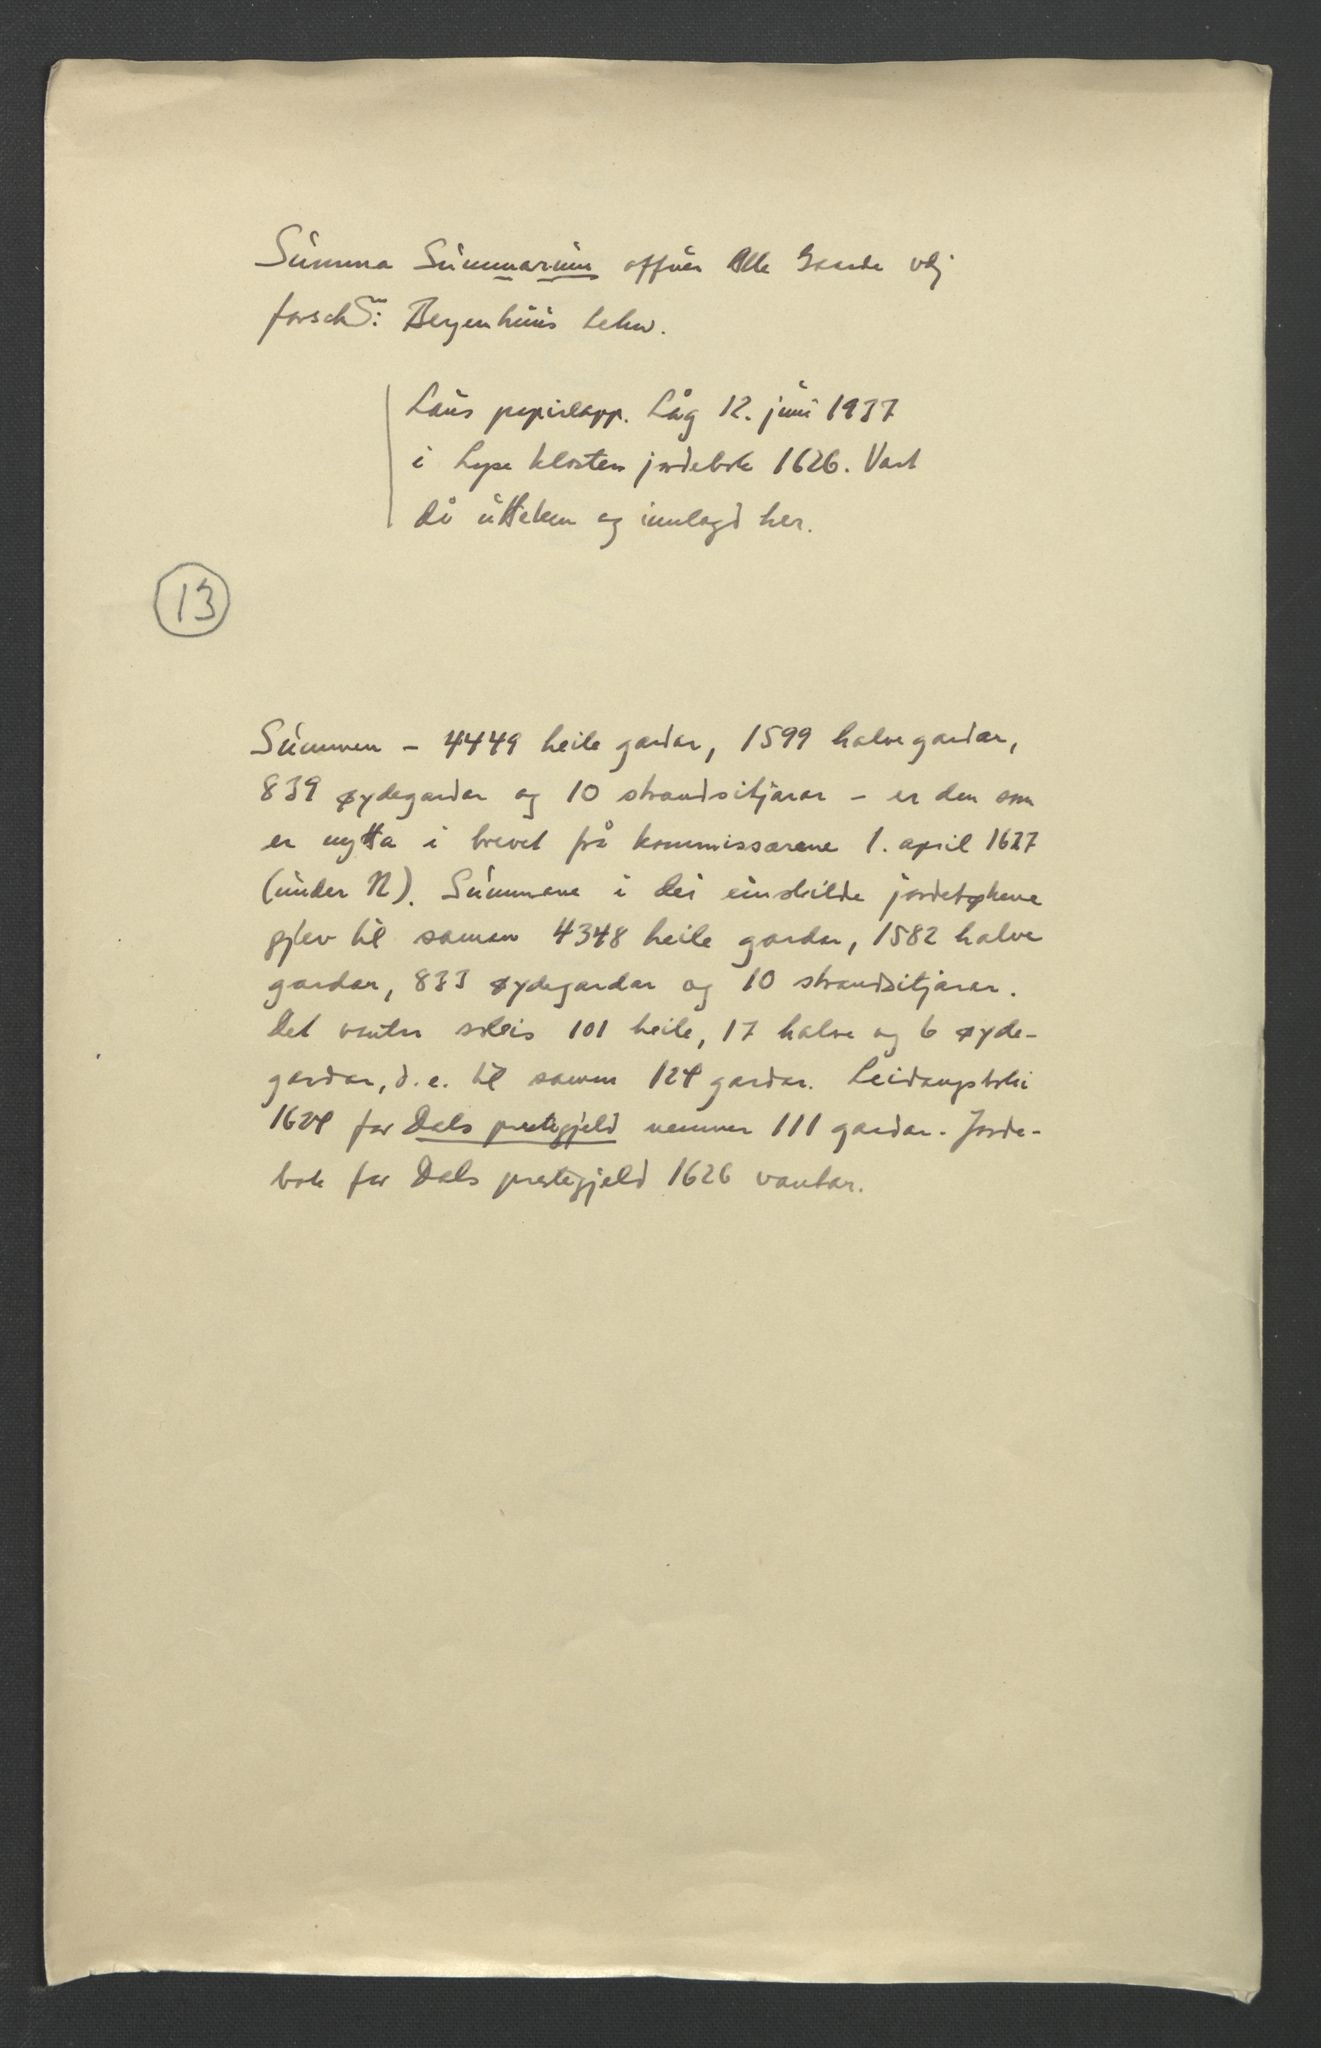 Summa Summarum offuer Alle Gaarde udj
forsch: Bergenhuus Lehn.
Laus papirlapp. Låg 12. juni 1937
i Lyse klosters jordebok 1626. Vart
då utteken og innlagd her.
13
Summen - 4449 heile gardar, 1599 halve gardar,
839 øydegardar og 10 strandsitjarar - er den som
er nytta i brevet frå kommissærene 1. april 1627
(under N). Summane i dei einskilde jordebøkene
gjev til saman 4348 heile gardar, 1582 halve
gardar, 833 øydegardar og 10 strandsitjarar.
Det vantar soleis 101 heile, 17 halve og 6 øyde-
gardar, d.e. til saman 124 gardar. Leidangsboki
1624 for Dals prestegjeld nemner 111 gardar. Jorde-
bok for Dals prestegjeld 1626 vantar.